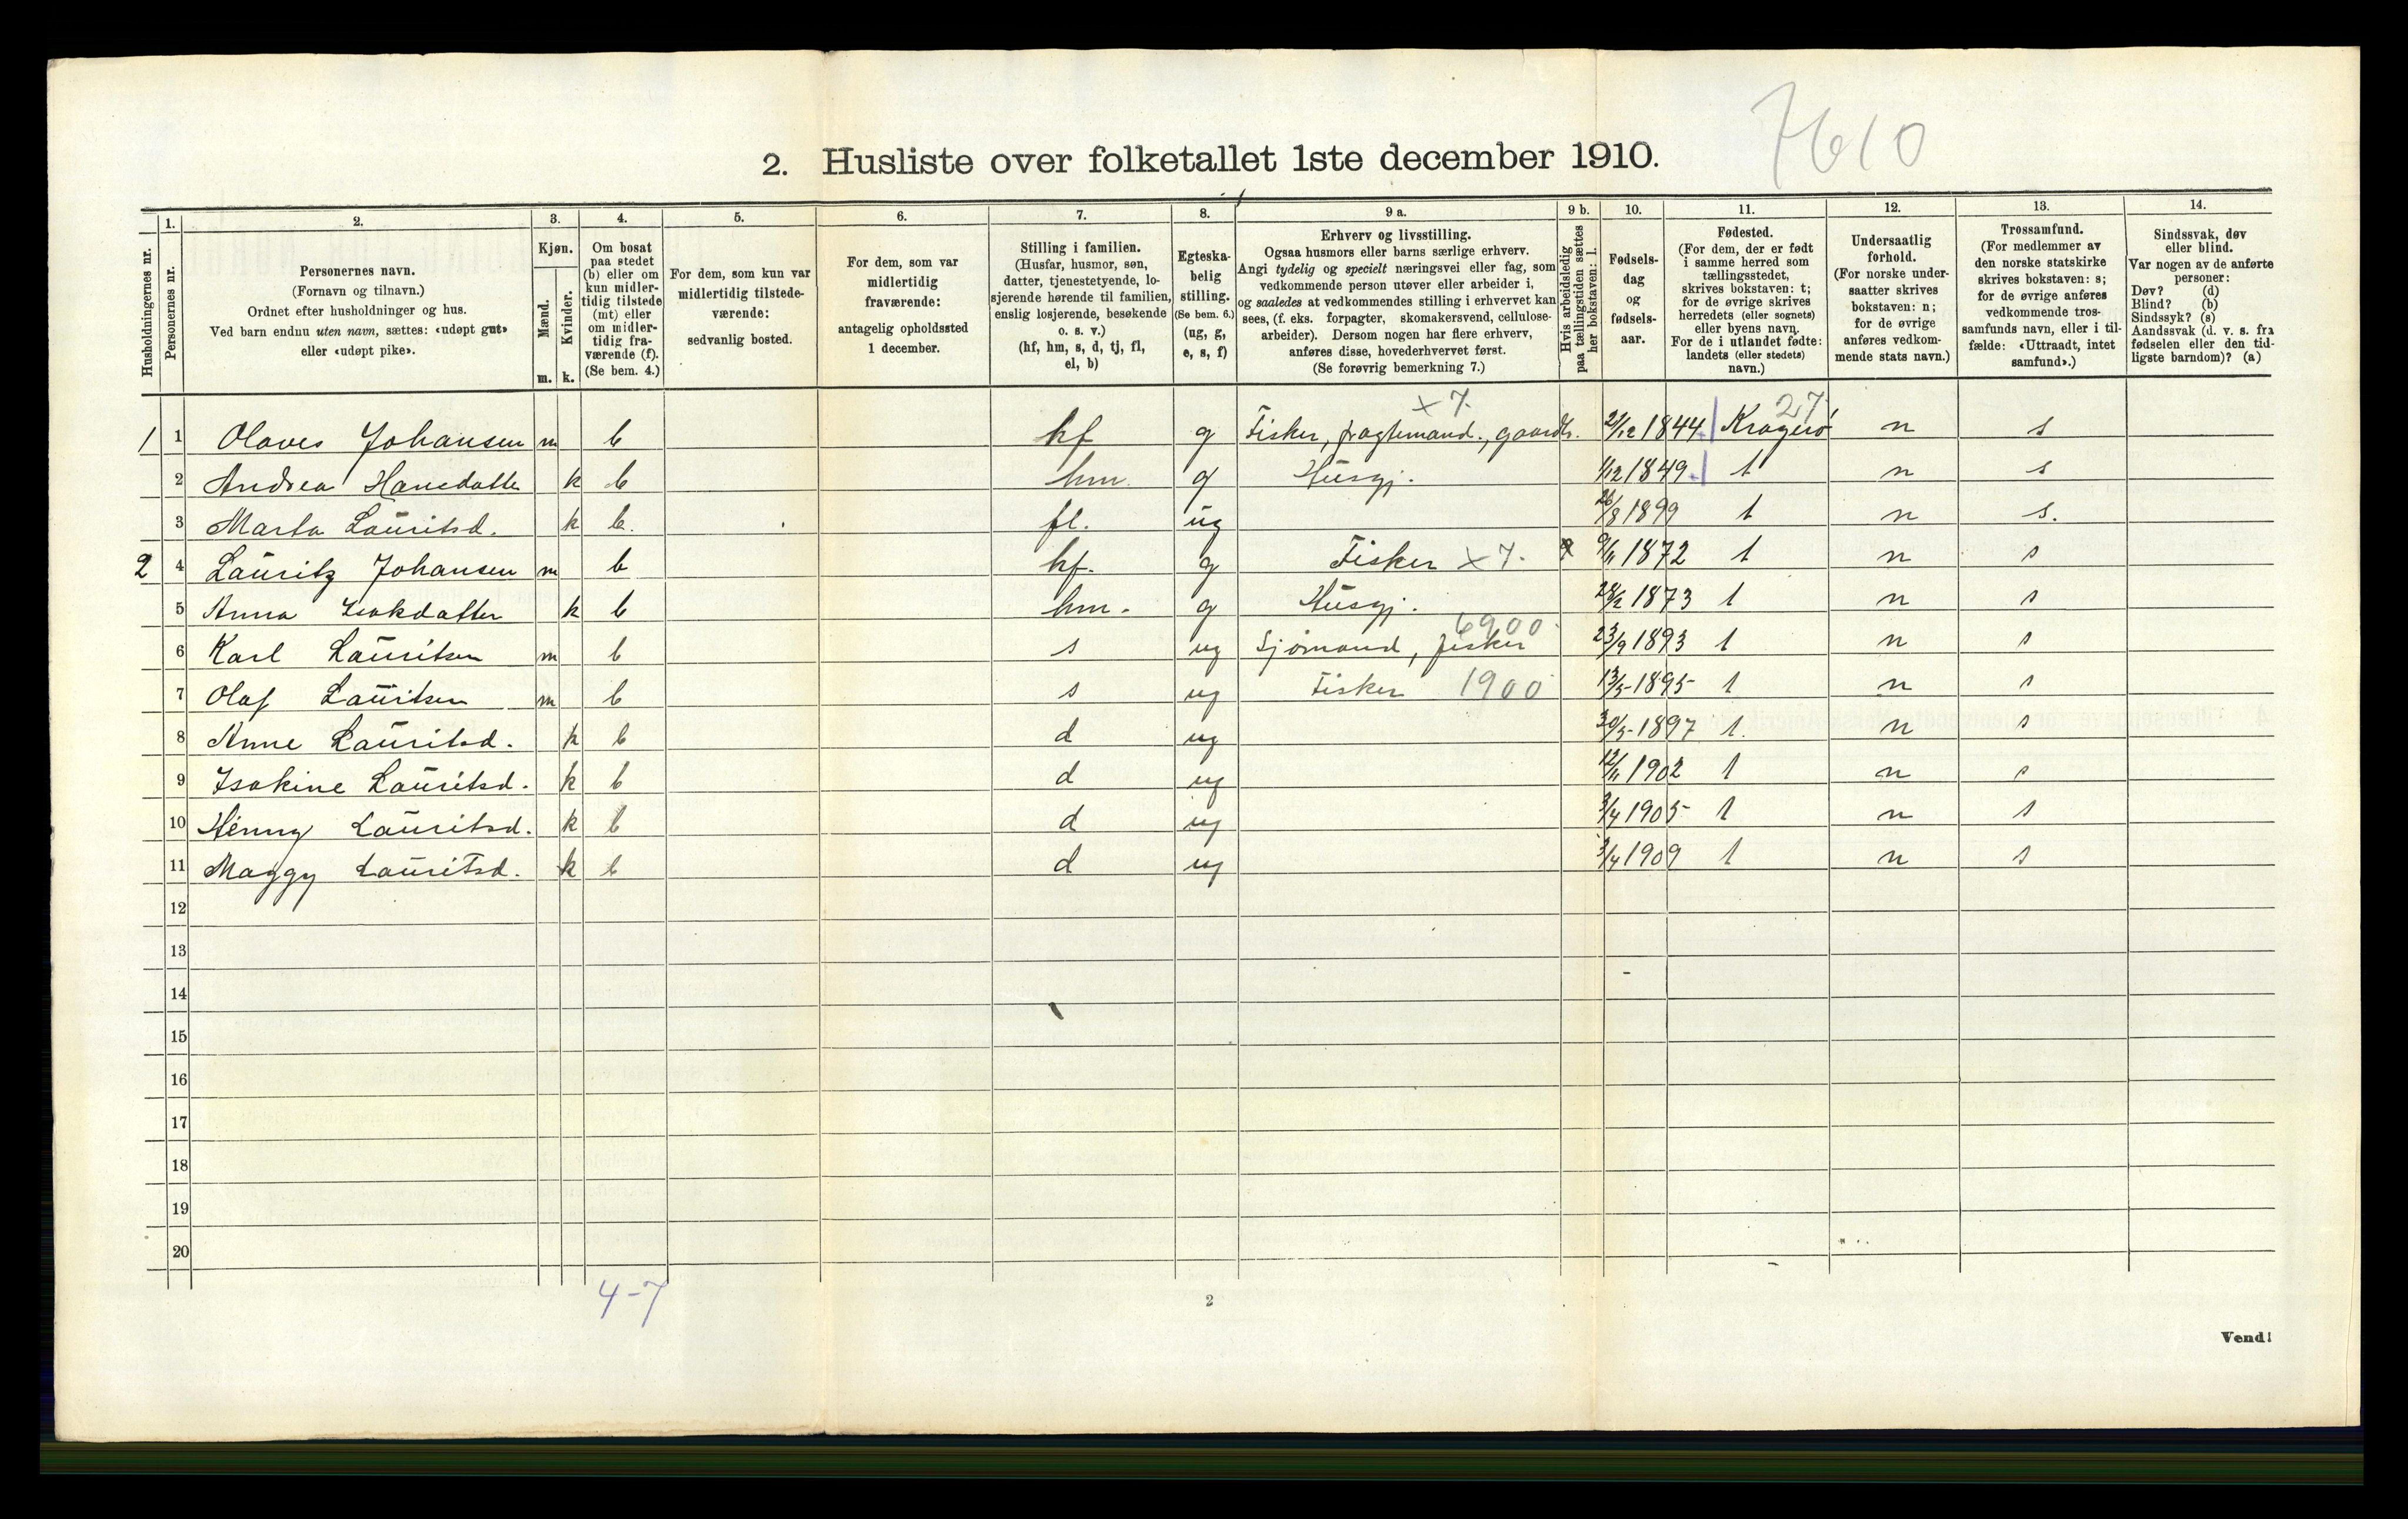 7610
2. Husliste over folketallet 1ste december 1910.
Husholdningernes nr.
1. Personernes nr.
2. Personernes navn. (Fornavn og tilnavn.) Ordnet efter husholdninger og hus. Ved barn endnu uten navn, sættes: «udøpt gut» eller «udøpt pike».
3. Kjøn. Mænd. m. Kvinder. k.
4. Om bosat paa stedet (b) eller om kun midler-tidig tilstede (mt) eller om midler-tidig fra-værende (f). (Se bem. 4.)
5. For dem, som kun var midlertidig tilstede-værende: sedvanlig bosted.
6. For dem, som var midlertidig fraværende: antagelig opholdssted 1 december.
7. Stilling i familien. (Husfar, husmor, søn, datter, tjenestetyende, lo-sjerende hørende til familien, enslig losjerende, besøkende o. s. v.) (hf, hm, s, d, tj, fl, el, b)
8. Egteska-belig stilling. (Se bem. 6.) (ug, g, e, s, f)
9 a. Erhverv og livsstilling. Ogsaa husmors eller barns særlige erhverv. Angi tydelig og specielt næringsvei eller fag, som vedkommende person utøver eller arbeider i, og saaledes at vedkommendes stilling i erhvervet kan sees, (f. eks. forpagter, skomakersvend, cellulose-arbeider). Dersom nogen har flere erhverv, anføres disse, hovederhvervet først. (Se forøvrig bemerkning 7.)
9 b. Hvis arbeidsledig paa tællingstiden sættes her bokstaven: l.
10. Fødsels-dag og fødsels-aar.
11. Fødested. (For dem, der er født i samme herred som tællingsstedet, skrives bokstaven: t; for de øvrige skrives herredets (eller sognets) eller byens navn. For de i utlandet fødte: landets (eller stedets) navn.)
12. Undersaatlig forhold. (For norske under-saatter skrives bokstaven: n; for de øvrige anføres vedkom-mende stats navn.)
13. Trossamfund. (For medlemmer av den norske statskirke skrives bokstaven: s; for de øvrige anføres vedkommende tros-samfunds navn, eller i til-fælde: «Uttraadt, intet samfund».)
14. Sindssvak, døv eller blind. Var nogen av de anførte personer: Døv? (d) Blind? (b) Sindssyk? (s) Aandssvak (d. v. s. fra fødselen eller den tid-ligste barndom)? (a)
x 7. 27
1 1 Olaves Johansen m b hf g Fisker, fragtemand., gaardb. /12 1844 Kragerø n s
2 Andrea Hansdatter k b hm. g Husgj. 1/12 1849 t n s
3 Marta Lauritsd. k b. fl. ug 26/8 1899 t n s.
2 4 Lauritz Johansen m b hf. g Fisker x 7. 9/11 1872 t n s
5 Anna Isakdatter k b hm. g Husgj. 28/2 1873 t n s
6900
6 Karl Lauritsen m b s ug Sjømand, fisker 23/9 1893 t n s
7 Olaf Lauritsen m b s ug Fisker 1900 13/5 1895 t n s
8 Anne Lauritsd. k b d ug 30/5 1897 t. n s
9 Isakine Lauritsd. k b d ug 12/11 1902 t n s
10 Henny Lauritsd. k b d ug 3/4 1905 t n s
11 Maggy Lauritsd. k b d ug 3/4 1909 t n s
12
13
14
15
16
17
18
19
20
4-7
2
Vend!